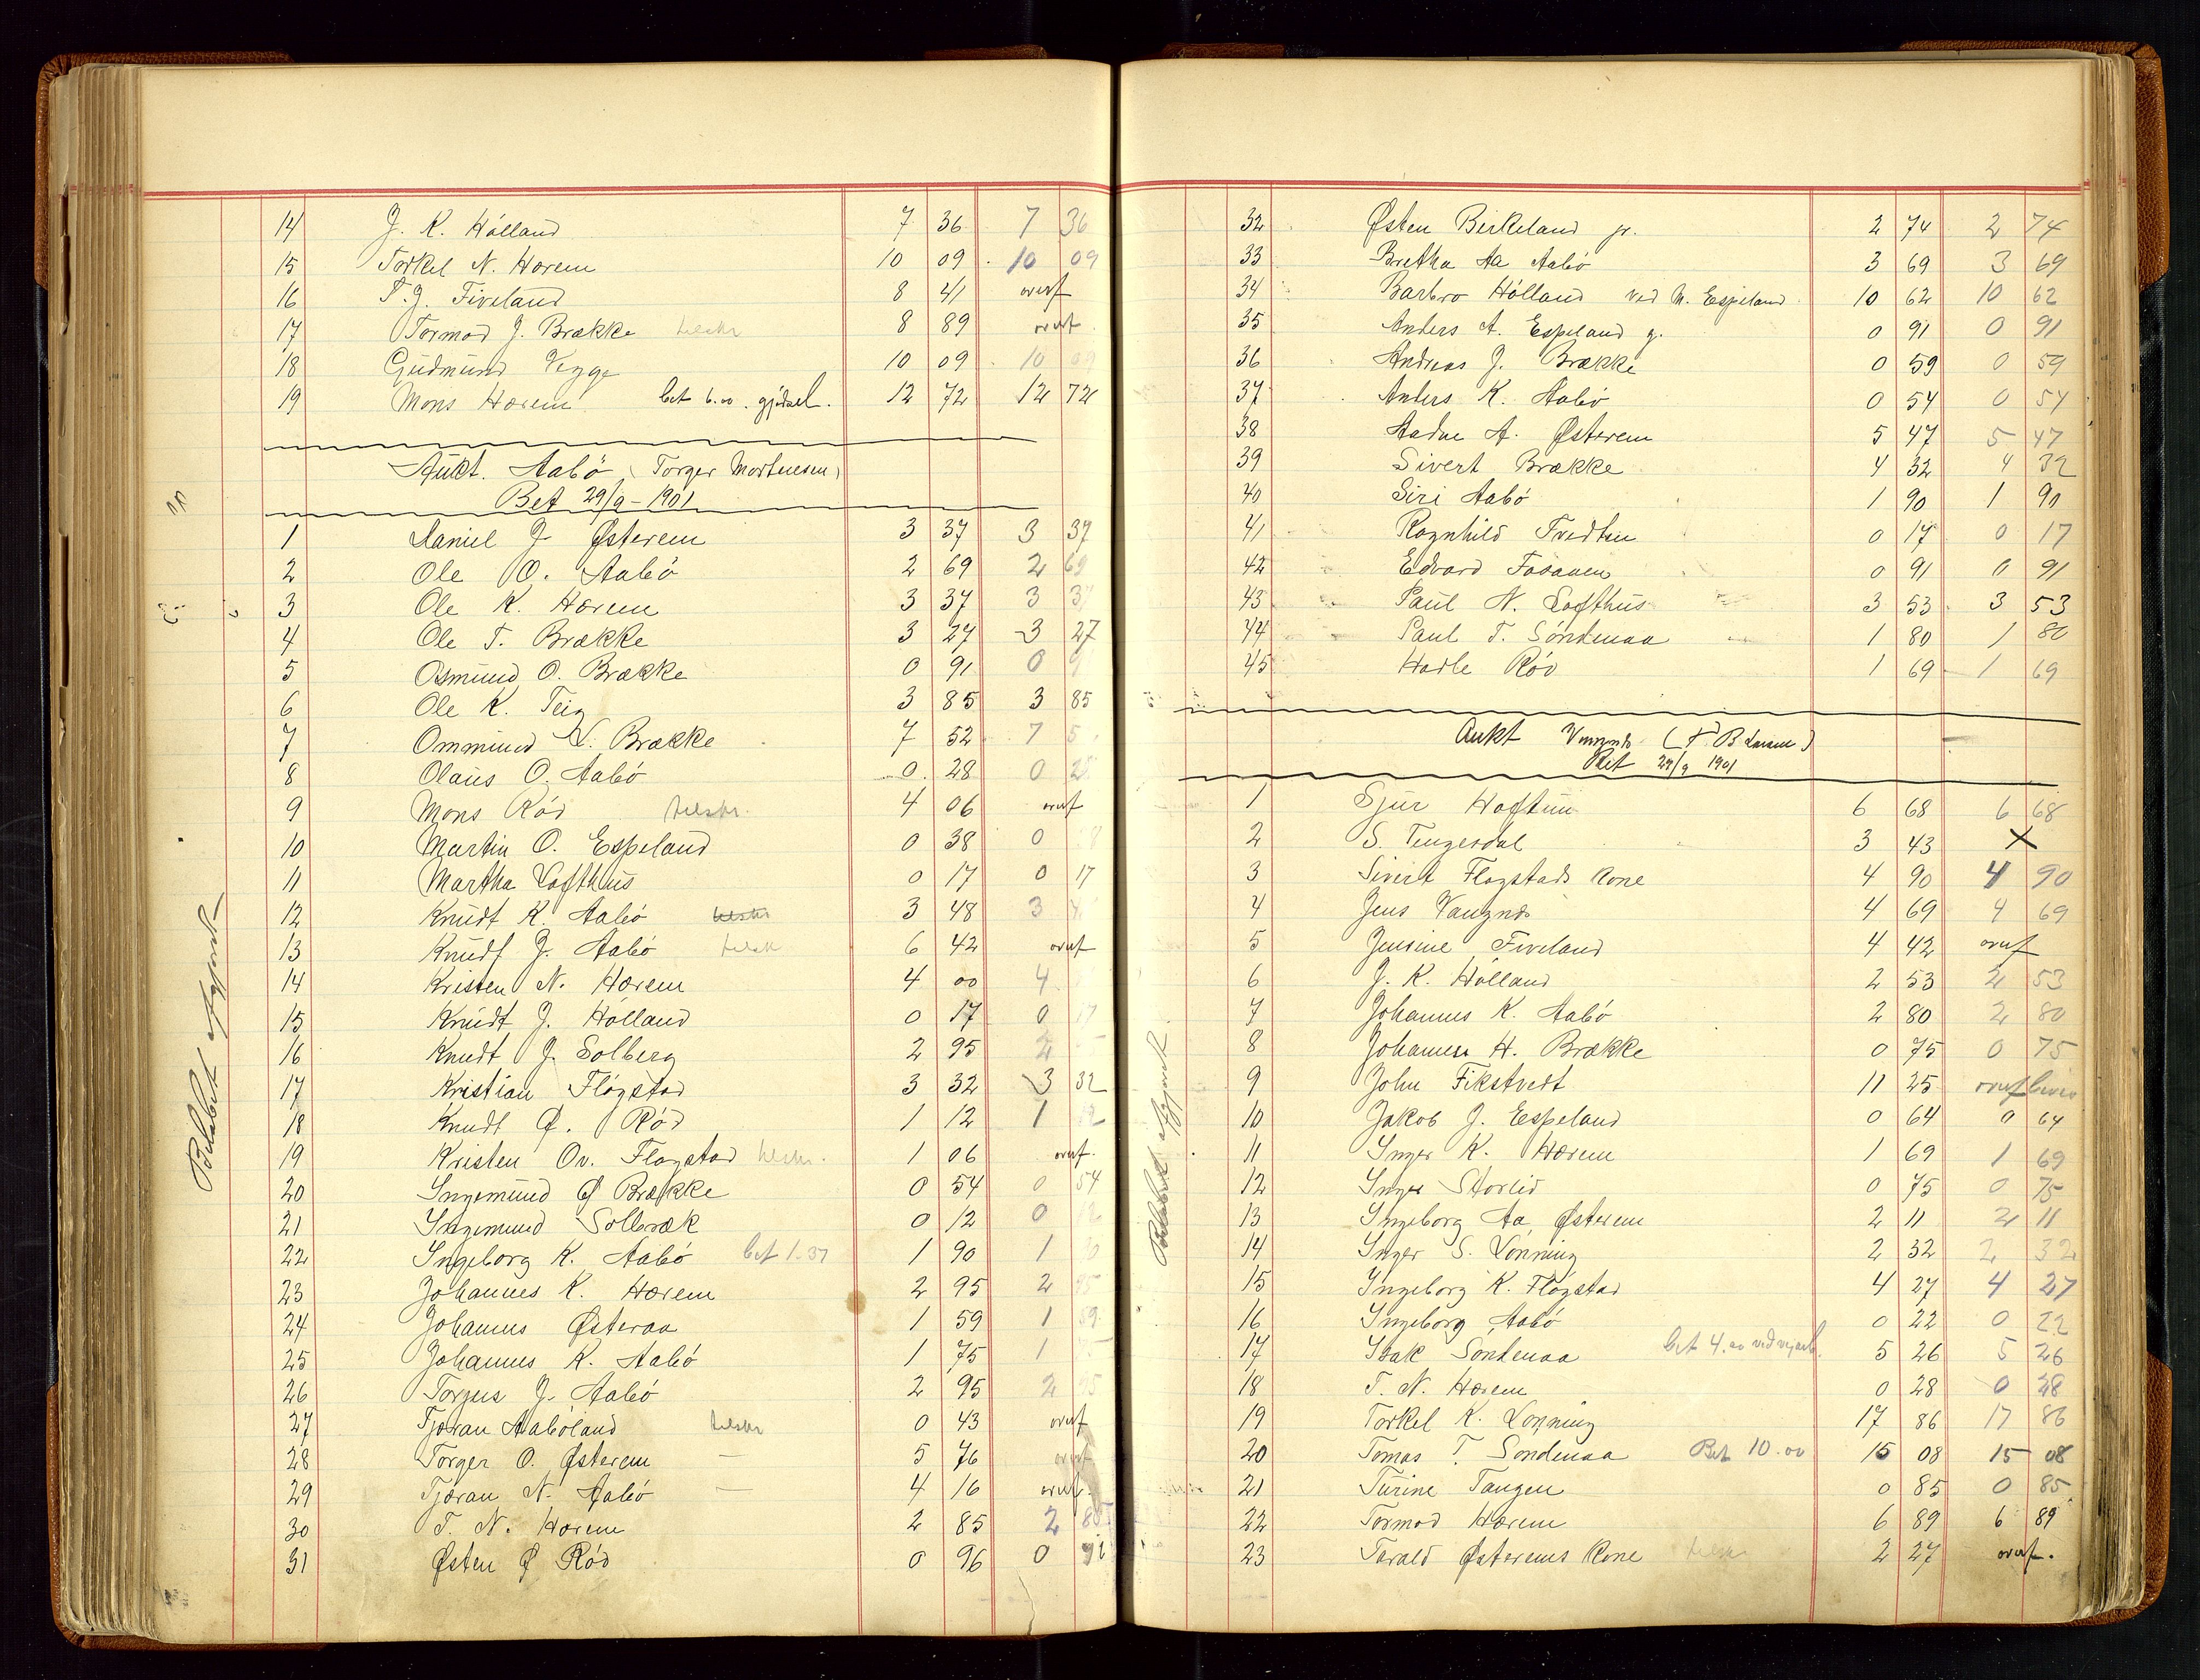 14 J. K. Hólland 7 36 7 36
15 Torkel N. Hærem 10 09 10 09
16 T. J. Fiveland 8 41 overf
17 Tormod J. Brække tilskr 8 89 overf
18 Gudmund Vegge 10 09 10 09
19 Mons Hærem bet 6.00 12 72 12 72
Aukt. Aabó (Torger Mortensen)
Bet 29/9 - 1901
1 Daniel J Østerem 3 37 3 37
2 Ole O. Aabó 2 69 2 69
3 Ole K. Hærem 3 37 3 37
4 Ole T. Brække 3 27 3 27
5 Osmund O. Brække 0 91 0 9
6 Ole K. Teig 3 85 3 85
7 Ommund L. Brække 7 52 7 5
8 Olaus O. Aabó 0 28 0 28
9 Mons Ród tilskr. 4 06 overf
10 Martin O. Espeland 0 38 0 38
11 Martha Lofthus 0 17 0 17
12 Knudt K. Aabó tilskr 3 48 3 4
13 Knudt J. Aabó tilsk 6 42 overf
14 Kristen N. Hærem 4 00 4
15 Knudt J. Hólland 0 17 0 17
16 Knudt J. Solberg 2 95 2
17 Kristian Flógstad 3 32 3 32
18 Knudt Ø. Ród 1 12 1 12
19 Kristen Ov. Flogstad tilskr. 1 06 overf.
20 Ingemund Ø Brække 0 54 0 54
21 Ingemund Solbræk 0 12 0 12
22 Ingeborg K. Aabó bet 1.37 1 90 1 90
23 Johannes K. Hærem 2 95 2 95
24 Johannes Østeraa 1 59 1 59
25 Johannes K. Aabó 1 75 1 75
26 Torgus J. Aabó 2 95 2 95
27 Tjøran Aabóland tilskr 0 43 overf
28 Torger O. Østerem — 5 76 overf
29 Tjøran N. Aabó — 4 16 overf.
30 T. N. Hærem 2 85 2 85
31 Østen Ø Ród 0 96 0 92
Belobet afgjort
32 Østen Birkeland jr. 2 74 2 74
33 Bretha Aa Aabó 3 69 3 69
34 Barbro Hólland ved M. Espeland 10 62 10 62
35 Anders A. Espeland g. 0 91 0 91
36 Andreas J. Brække 0 59 0 59
37 Anders K. Aabó 0 54 0 54
38 Aadne A. Østerem 5 47 5 47
39 Sivert Brække 4 32 4 32
40 Siri Aabó 1 90 1 90
41 Ragnhild Tvedten 0 17 0 17
42 Edvard Fosaaen 0 91 0 91
43 Paul N. Lofthus 3 53 3 53
44 Paul T. Sóndenaa 1 80 1 80
45 Hadle Ród 1 69 1 69
Aukt
Bet 29/9 1901
1 Sjur Hoftun 6 68 6 68
2 S. Tengesdal 3 43 X
3 Sivert Flogstads Kone 4 90 4 90
4 Jens 4 69 4 69
5 Jensine Fiveland 4 42 overf
6 J. K. Hólland 2 53 2 53
7 Johannes K. Aabó 2 80 2 80
8 Johannes H. Brække 0 75 0 75
9 John Fikstvedt 11 25 overf
10 Jakob J. Espeland 0 64 0 64
11 Inger K. Hærem 1 69 1 69
12 Inger Storlid 0 75 0 75
13 Ingeborg Aa Østerem 2 11 2 11
14 Inger S. Lónning 2 32 2 32
15 Ingeborg K. Flógstad 4 27 4 27
16 Ingeborg Aabó 0 22 0 22
17 Isak Sóndenaa bet 4.00 5 26 5 26
18 T. N. Hærem 0 28 0 28
19 Torkel K. Lónning 17 86 17 86
20 Tomas T. Sondenaa Bet 10.00 15 08 15 08
21 Turine Tangen 0 85 0 85
22 Tormod Hærem 6 89 6 89
23 Tarald Østerems Kone tilskr 2 27 overf.
Belobet afgjort